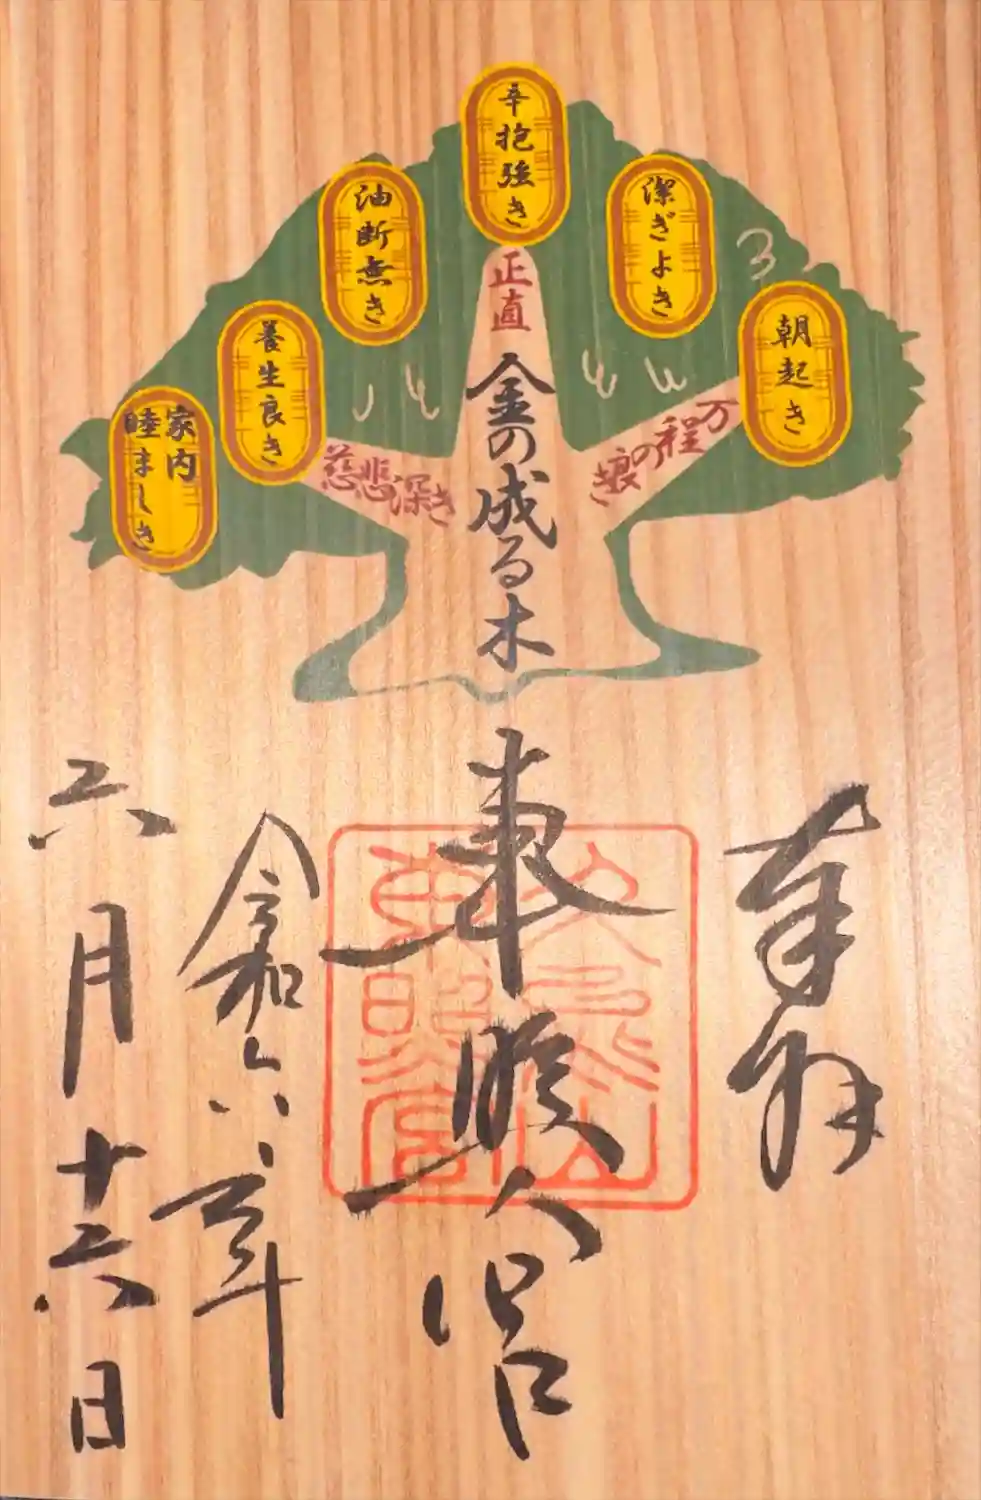 朝起き
潔ぎよき
辛抱強き
油断無き
養生良き
家内
睦ましき
正直
万程の
慈悲深き
金の成る木
奉拝
東照宮
久能山
東照宮
令和六年
六月十六日